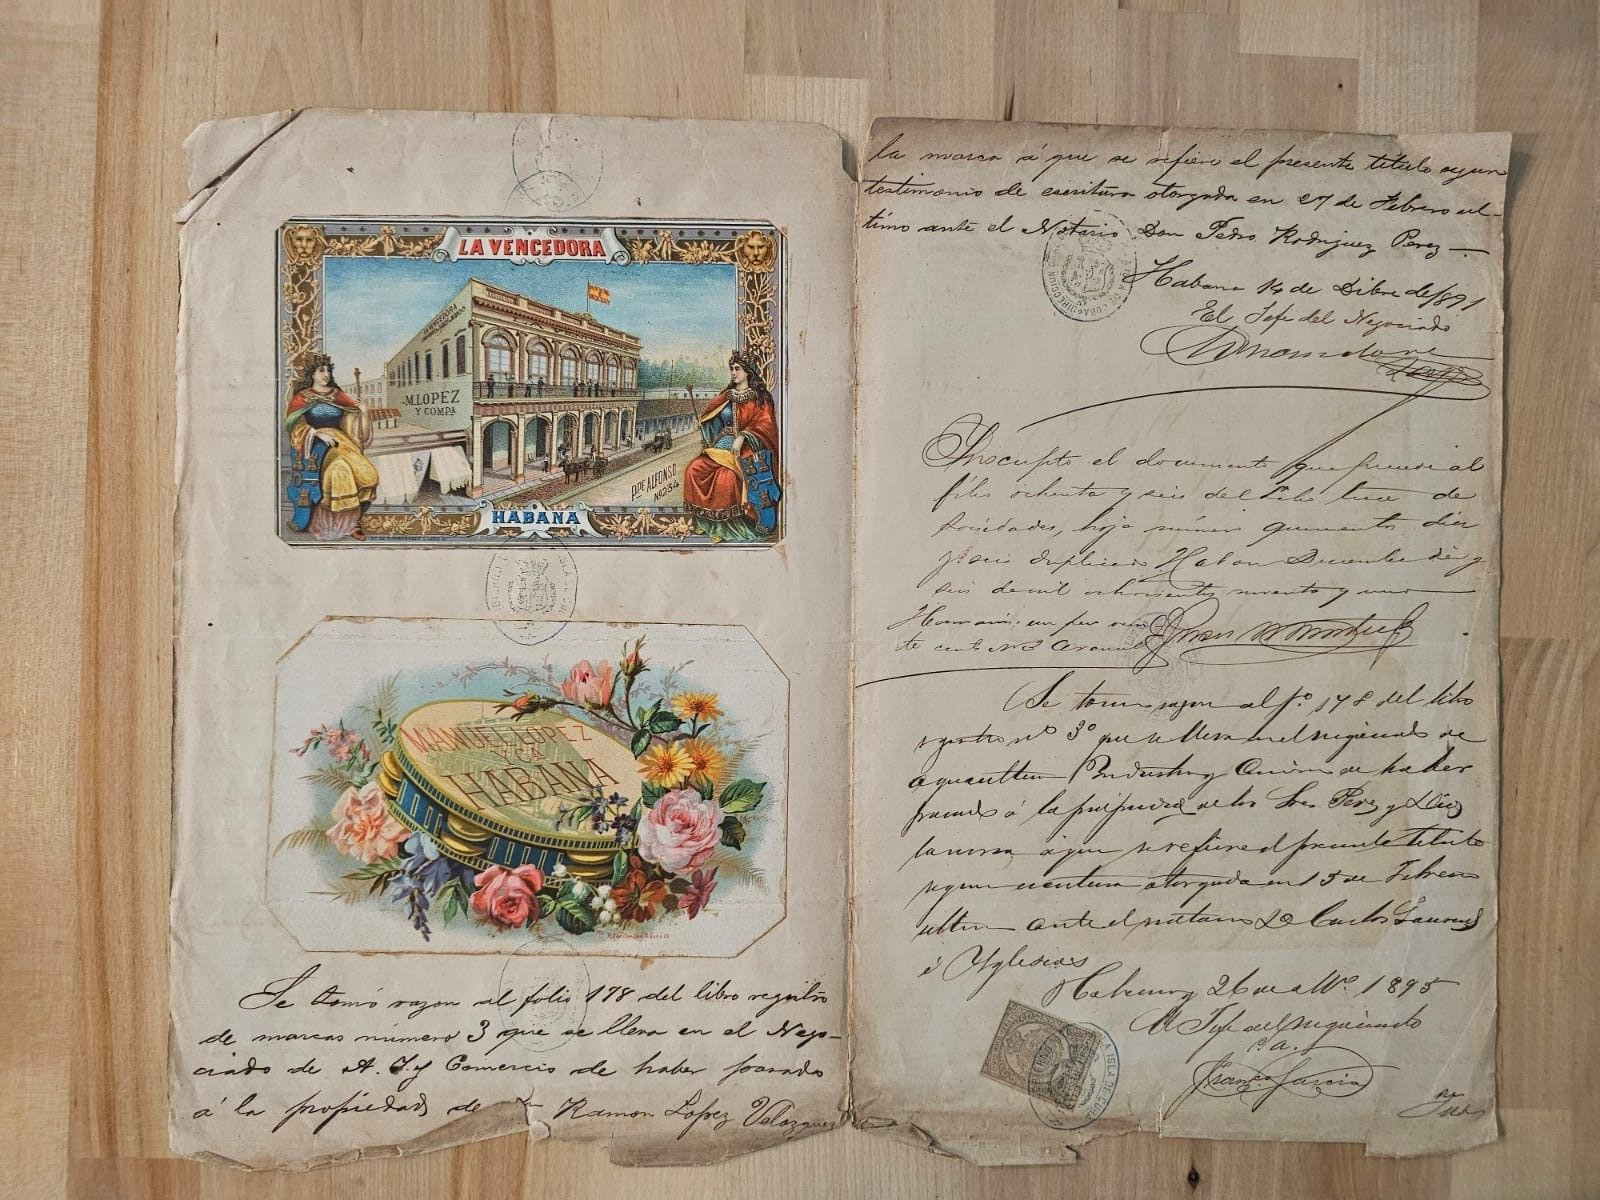 LA VENCEDORA
M. LOPEZ
Y COMPA
PPE ALFONSO
No 254
HABANA
MANUEL LOPEZ
Y CA
HABANA
Se tomó razon al folio 178 del libro registro
de marcas número 3 que se lleva en el Nego-
ciado de A. I. y Comercio de haber pasado
á la propiedad de Dn Ramon Lopez Velazquez
la marca á que se refiere el presente título segun
testimonio de escritura otorgada en 27 de Febrero ul-
timo ante el Notario Don Pedro Rodriguez Perez
Habana 14 de Dibre de 1891
El Jefe del Negociado
Inscripto el documento que precede al
fólio ochenta y seis del Libro trece de
Sociedades, hoja número quinientos diez
y seis duplicado Habana Diciembre diez y
seis de mil ochocientos noventa y uno
Se tomó razon al fo. 178 del libro
registro no 3o que se lleva en el negociado de
Agricultura Industria y Comercio de haber
pasado á la propiedad de los Sres Perez y Diaz
la marca á que se refiere el presente titulo
segun escritura otorgada en 15 de Febrero
ultimo ante el notario Dn Carlos Laurent
é Yglesias
Habana y 26 de Mzo. 1895
El Jefe del negociado
P. A.
Franco Garcia
ISLA DE CUBA